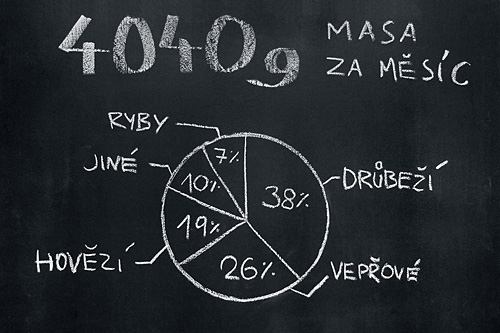 4040g
MASA
ZA MĚSÍC
RYBY
7%
JINÉ
10%
38%
DRŮBEŽÍ
19%
HOVĚZÍ
26%
VEPŘOVÉ